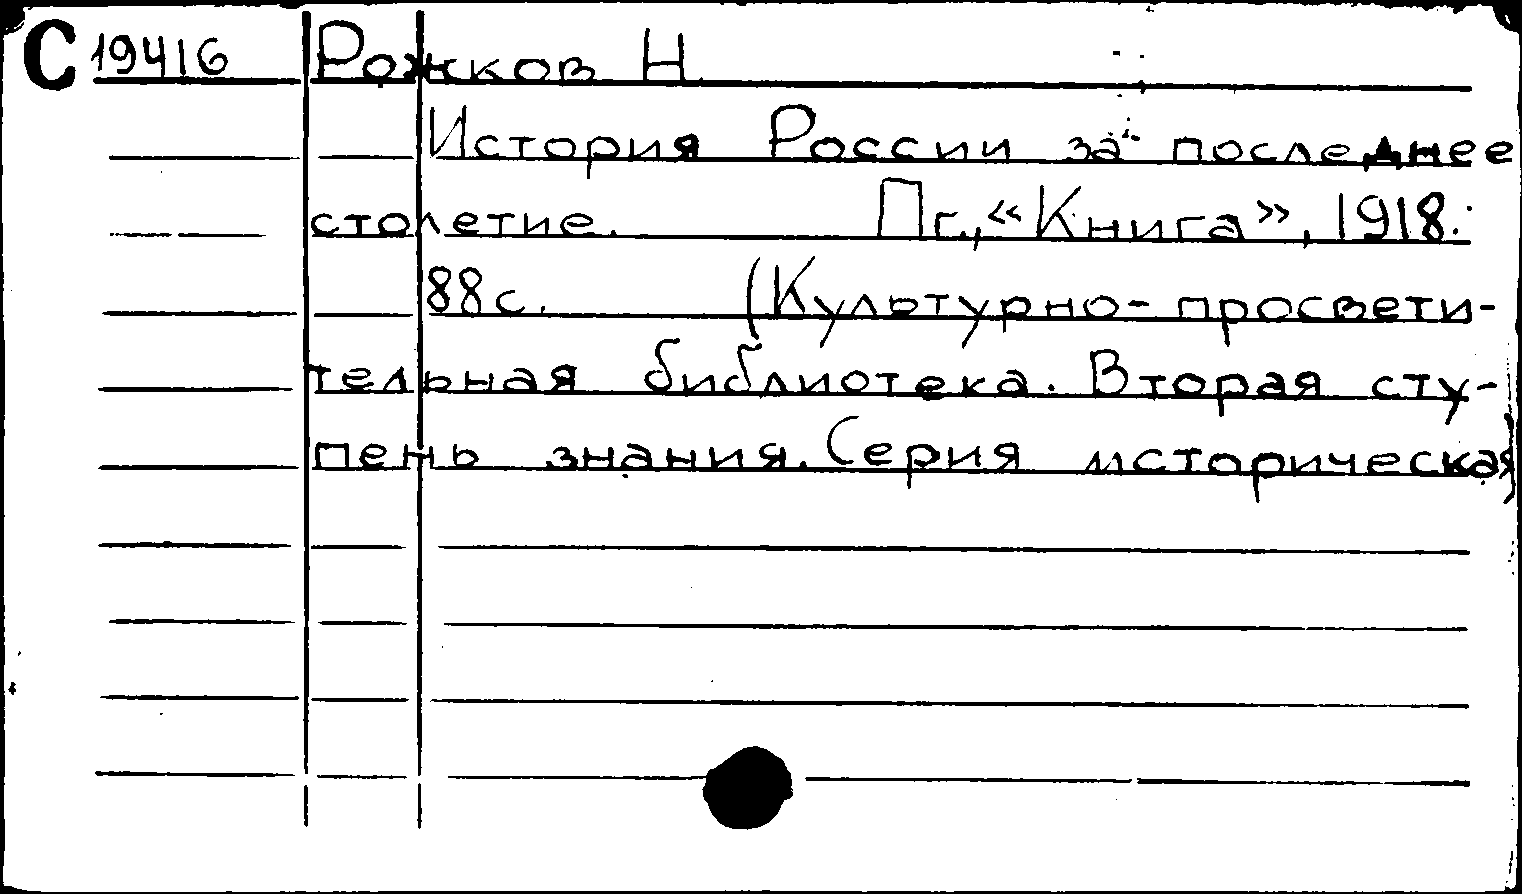 С 19416 Рожков Н.
История России за последнее
столетие. Пг., «Книга», 1918.
88с. (Культурно-просвети-
тельная библиотека. Вторая сту-
пень знания. Серия историческая)